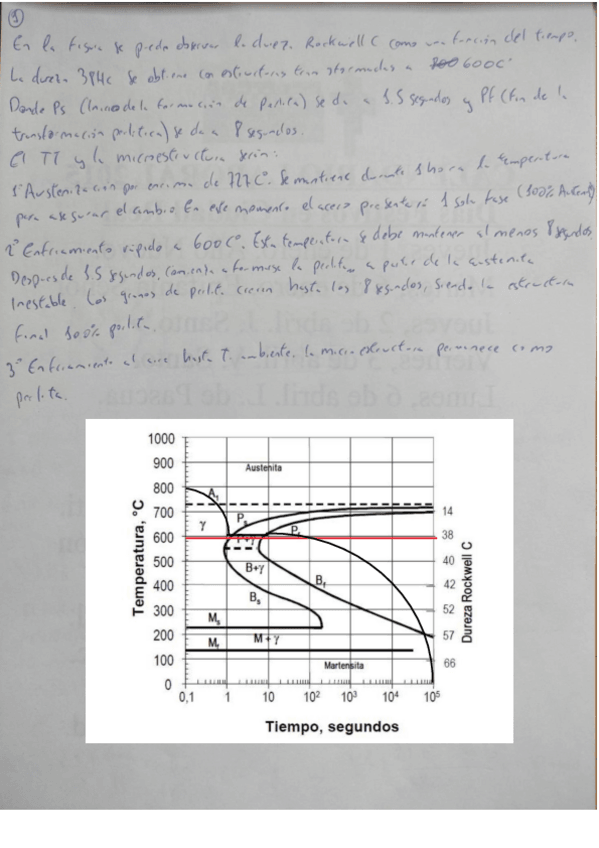 1
En la figura se puede observar la dureza Rockwell C como una función del tiempo.
La dureza 38Hc se obtiene con estructuras transformadas a 600Cº
Donde Ps (Inicio de la formación de perlita) se da a 1.5 segundos y Pf (fin de la
transformación perlítica) se da a 8 segundos.
El TT y la microestructura serían:
1º Austenización por encima de 727Cº. Se mantiene durante 1 hora la temperatura
para asegurar el cambio En este momento el acero presentará 1 sola fase (100% Austenita)
2º Enfriamiento rápido a 600Cº. Esta temperatura se debe mantener al menos 8 segundos.
Después de 1.5 segundos, comienza a formarse la perlita a partir de la austenita
Inestable. Los granos de perlita crecen hasta los 8 segundos, siendo la estructura
final 100% perlita.
3º Enfriamiento al aire hasta T. ambiente. la microestructura permanece como
perlita.
1000
900
800
700
600
500
400
300
200
100
0
Temperatura, °C
Austenita
A1
γ
Ps
Pf
P+γ
B+γ
Bs
Bf
Ms
M + γ
Mf
Martensita
14
38
40
42
52
57
66
Dureza Rockwell C
0,1 1 10 10² 10³ 10⁴ 10⁵
Tiempo, segundos